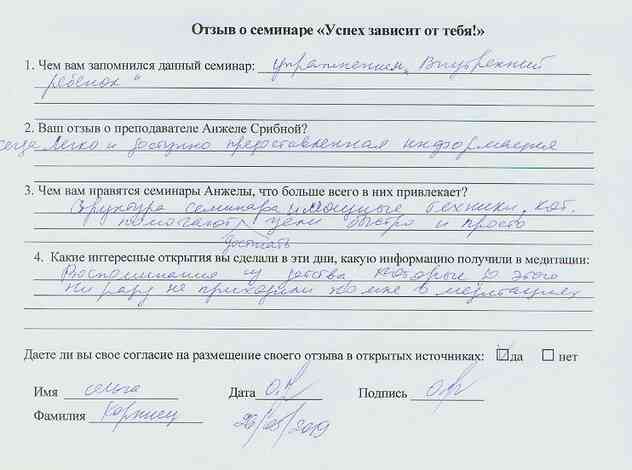 Отзыв о семинаре «Успех зависит от тебя!»
1. Чем вам запомнился данный семинар: упражнением „Внутренний
ребенок"
2. Ваш отзыв о преподавателе Анжеле Срибной?
Легко и доступно представленная информация
3. Чем вам нравятся семинары Анжелы, что больше всего в них привлекает?
Структура семинара и мощные техники, кот.
помогают цели быстро и просто
достигать
4. Какие интересные открытия вы сделали в эти дни, какую информацию получили в медитации:
Воспоминания из детства которые до этого
ни разу не приходили ко мне в медитациях
Даете ли вы свое согласие на размещение своего отзыва в открытых источниках: ☑ да ☐ нет
Имя Дата Подпись
Фамилия
26/05/2019